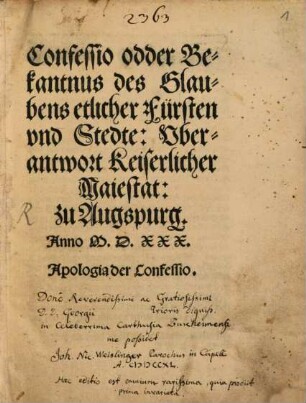 2363
1
Confessio odder Be-
kantnus des Glau-
bens etlicher Fürsten
vnd Stedte: Vber-
antwort Keiserlicher
Maiestat:
zu Augspurg.
R
Anno M. D. XXX.
Apologia der Confessio.
Dono Reverendissimi ac Gratiosissimi
D. D. Georgii Prioris digniss.
in Celeberrima Carthusia
me possidet
Joh. Nic. Weislinger Parochus in Capell
A. MDCCXL.
Haec editio est omnium rarissima, quia prodiit
prima invariata.